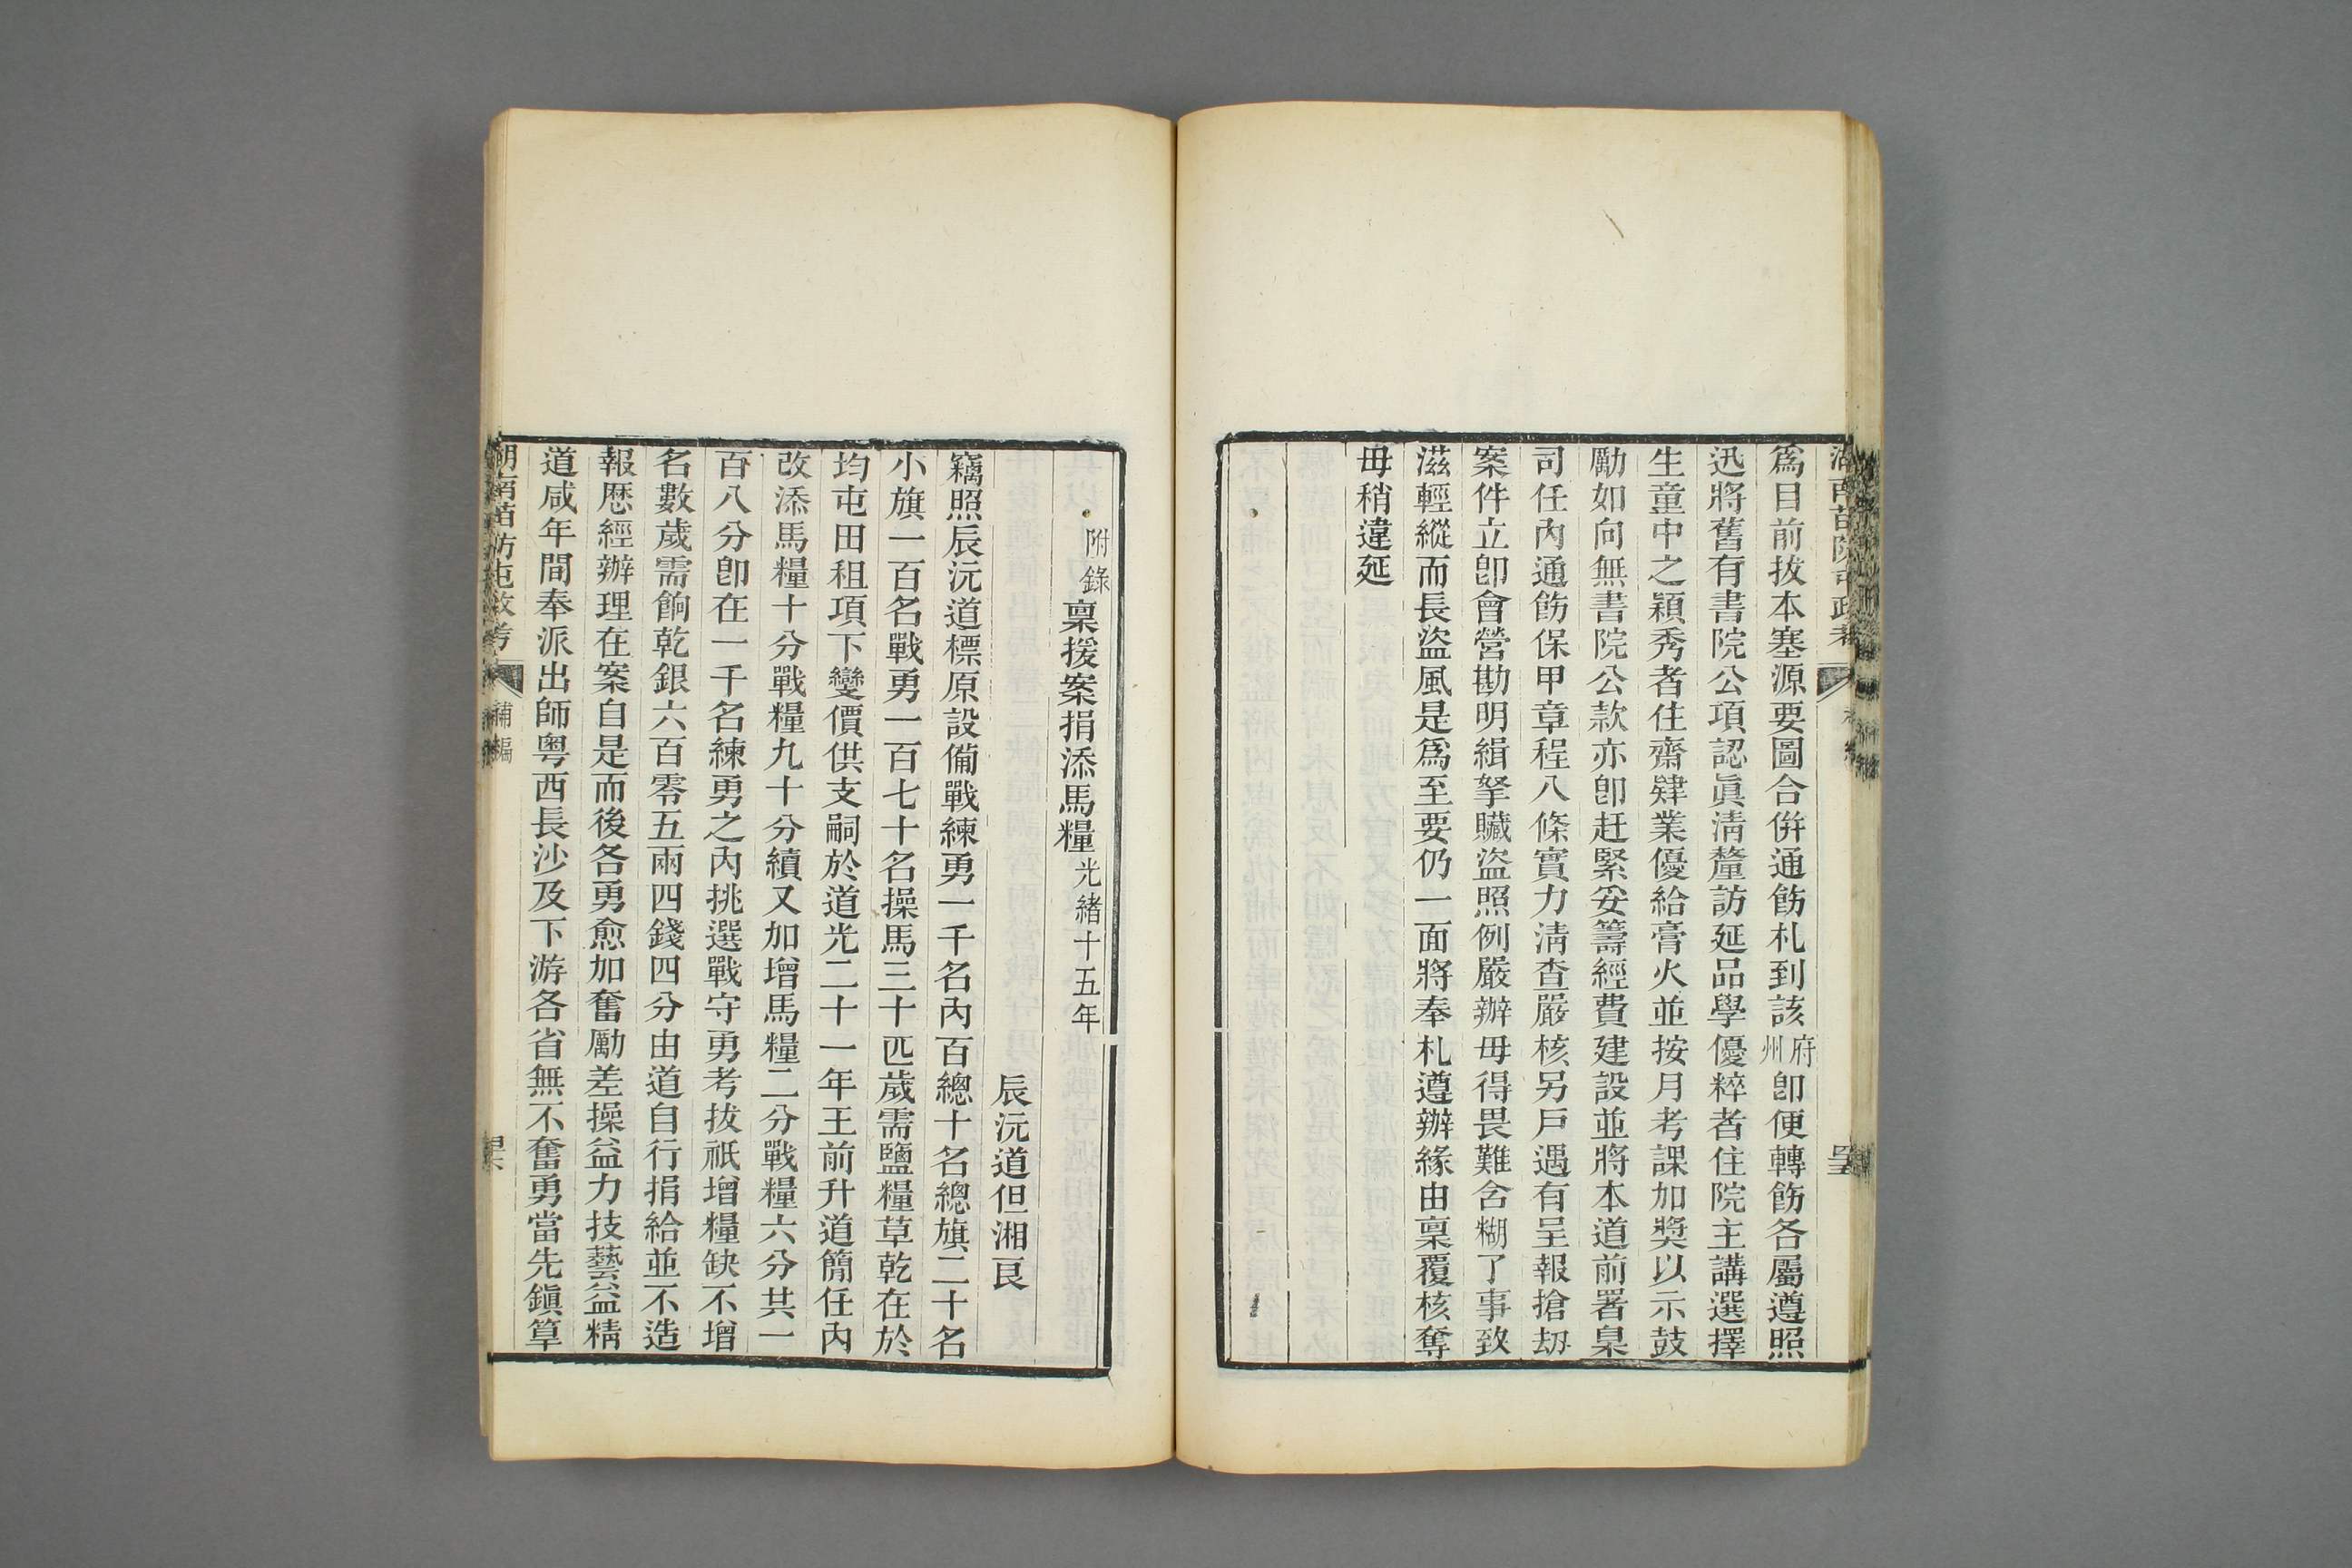 爲目前拔本塞源要圖合併通飭札到該府州卽便轉飭各屬遵照
迅將舊有書院公項認眞淸釐訪延品學優粹者住院主講選擇
生童中之穎秀者住齋肄業優給膏火並按月考課加獎以示鼓
勵如向無書院公款亦卽赶緊妥籌經費建設並將本道前署臬
司任內通飭保甲章程八條實力淸查嚴核另戶遇有呈報搶刼
案件立卽會營勘明緝拏贓盜照例嚴辦毋得畏難含糊了事致
滋輕縱而長盜風是爲至要仍一面將奉札遵辦緣由稟覆核奪
毋稍違延
附錄稟援案捐添馬糧光緒十五年
辰沅道但湘良
竊照辰沅道標原設備戰練勇一千名內百總十名總旗二十名
小旗一百名戰勇一百七十名操馬三十匹歲需鹽糧草乾在於
均屯田租項下變價供支嗣於道光二十一年王前升道簡任內
改添馬糧十分戰糧九十分續又加增馬糧二分戰糧六分共一
百八分卽在一千名練勇之內挑選戰守勇考拔祇增糧缺不增
名數歲需餉乾銀六百零五兩四錢四分由道自行捐給並不造
報歷經辦理在案自是而後各勇愈加奮勵差操益力技藝益精
道咸年間奉派出師粵西長沙及下游各省無不奮勇當先鎭筸
湖南苗防屯政考
補編